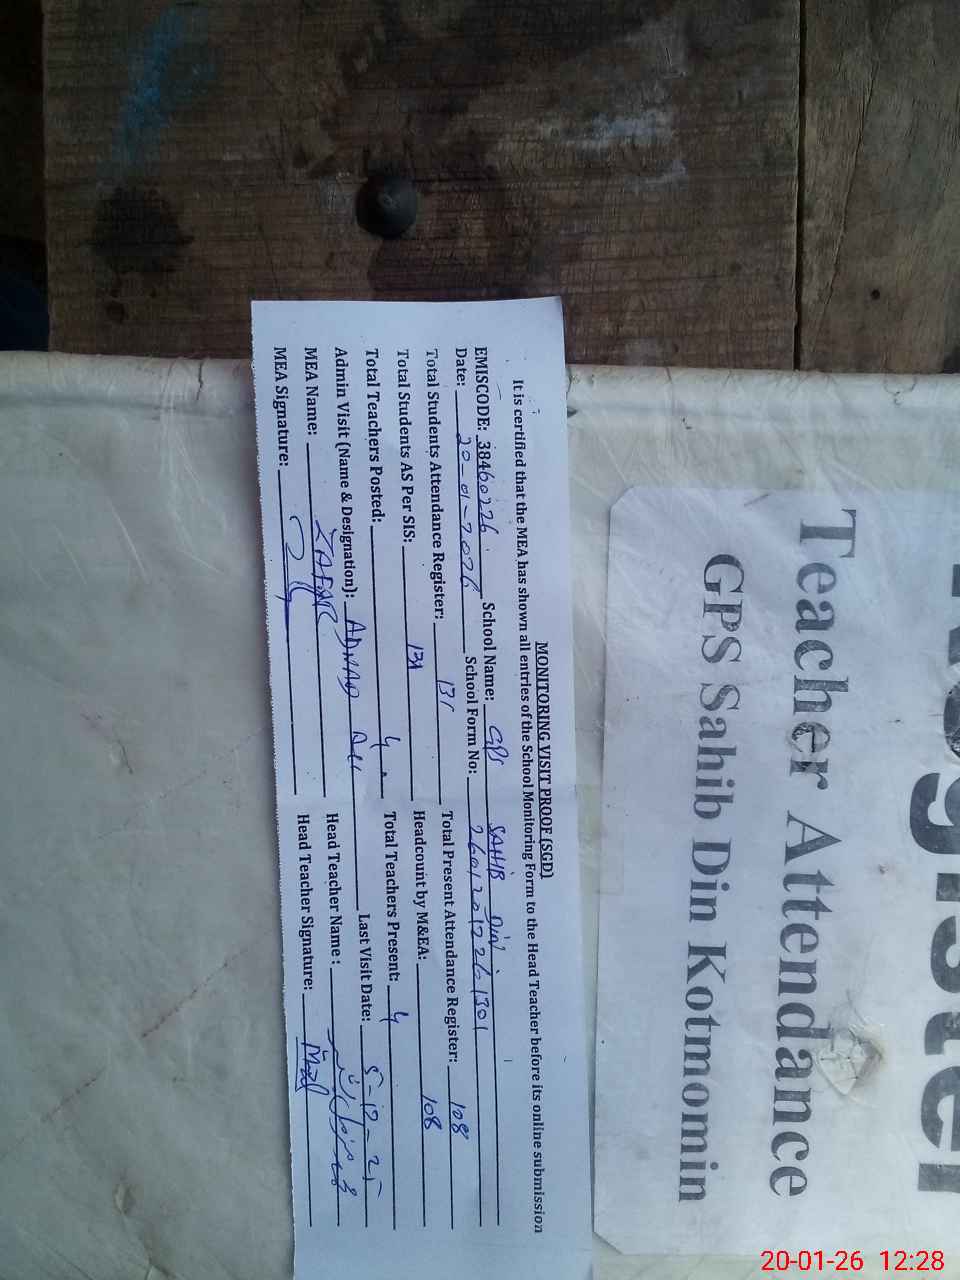 MONITORING VISIT PROOF (SGD)
It is certified that the MEA has shown all entries of the School Monitoring Form to the Head Teacher before its online submission
EMISCODE: 38460226 School Name: GPS SAHIB Din
Date: 20-01-2026 School Form No:
Total Students Attendance Register: 131 Total Present Attendance Register: 108
Total Students AS Per SIS: 131 Headcount by M&EA: 108
Total Teachers Posted: 4 Total Teachers Present: 4
Admin Visit (Name & Designation): Last Visit Date: 5-12-25
MEA Name: ZAFAR Head Teacher Name:
MEA Signature: Head Teacher Signature:
Register
Teacher Attendance
GPS Sahib Din Kotmomin
20-01-26 12:28